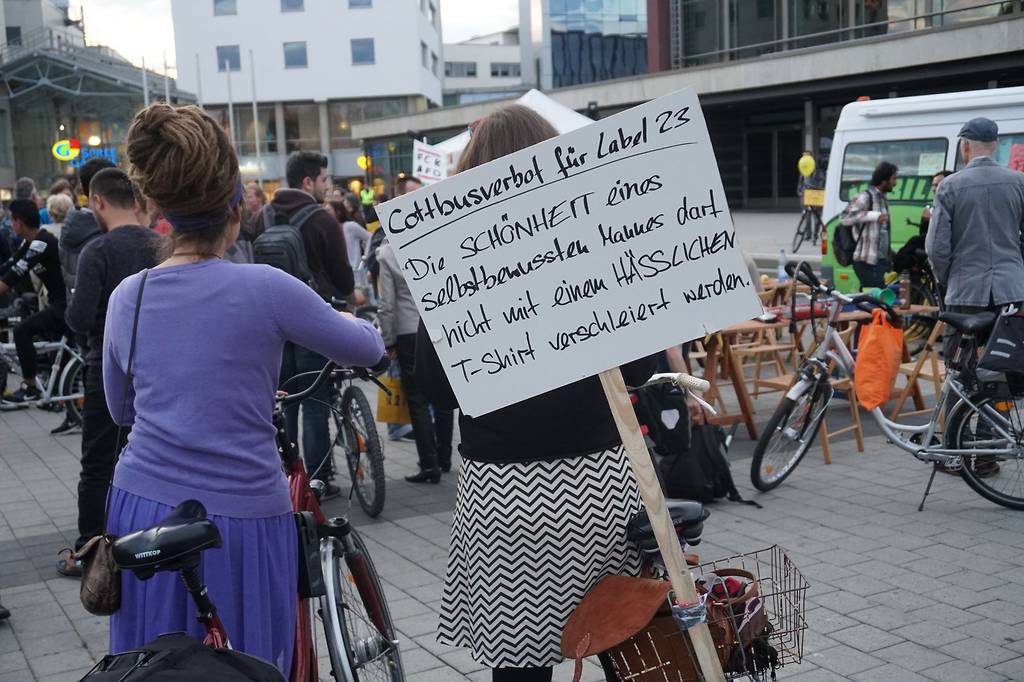 FCK
AFD
Cottbusverbot für Label 23
Die SCHÖNHEIT eines
selbstbewussten Mannes darf
nicht mit einem HÄSSLICHEN
T-Shirt verschleiert werden.
WITTKOP